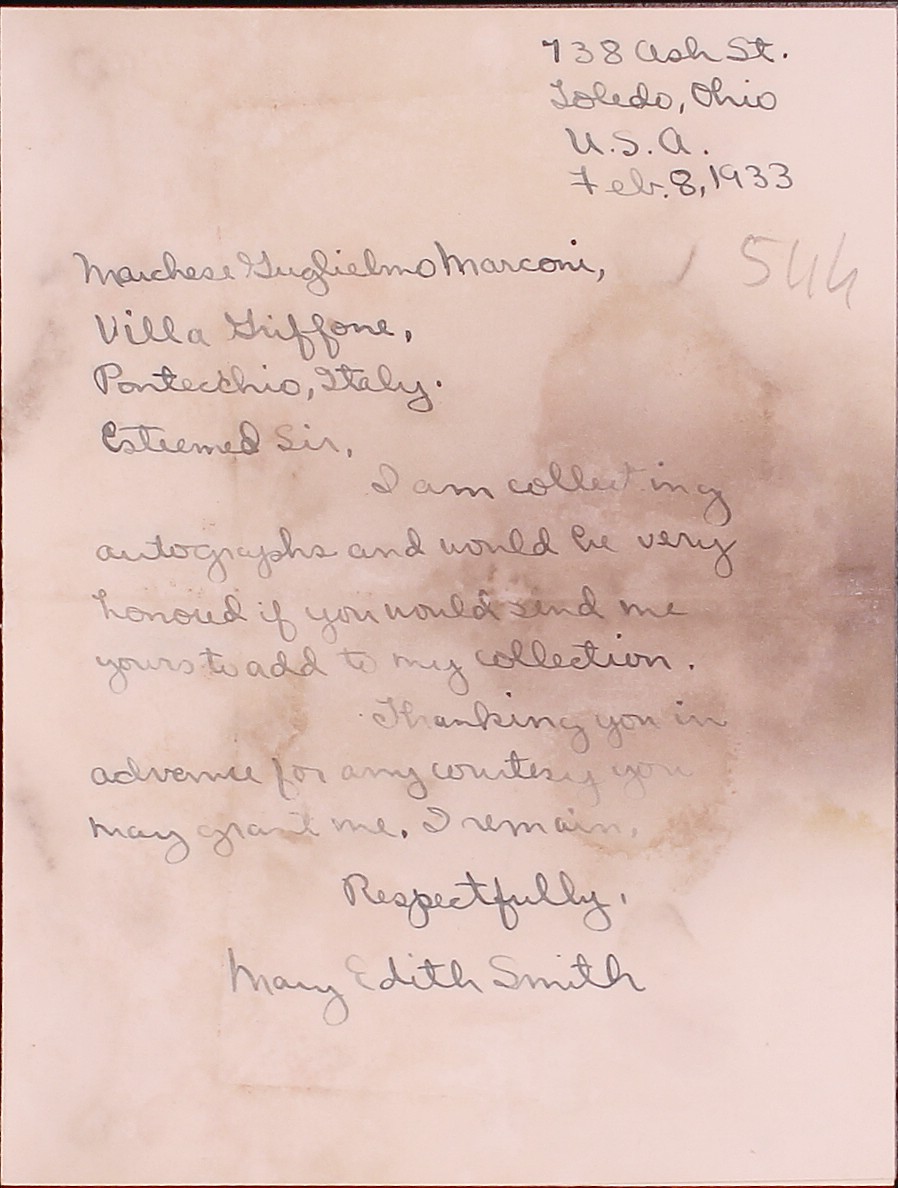 738 Ash St.
Toledo, Ohio
U.S.A.
Feb. 8, 1933
544
Marchese Guglielmo Marconi,
Villa Griffone,
Pontecchio, Italy.
Esteemed Sir,
I am collecting
autographs and would be very
honored if you would send me
yours to add to my collection.
Thanking you in
advance for any courtesy you
may grant me, I remain,
Respectfully,
Mary Edith Smith